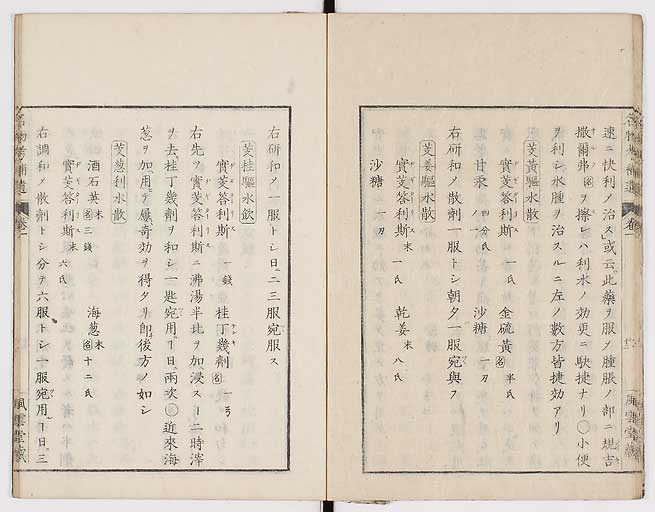 速ニ快利ノ治ス或云此藥ヲ服ノ腫脹ノ部ニ規吉
撒爾弗名ヲ擦レハ利水ノ効更ニ駃捷ナリ〇小便
ヲ利シ水腫ヲ治スルニ左ノ數方皆捷効アリ
芰黄驅水散
實芰答利斯 一氏 金硫黄名 半氏
甘汞 四分氏ノ一 沙糖 一刀
右研和ノ散劑一服トシ朝夕一服宛與フ
芰姜驅水散
實芰答利斯末 一氏 乾姜末 八氏
沙糖 一刀
右研和ノ一服トシ日二三服宛服ス
芰桂驅水飲
實芰答利斯 一錢 桂丁幾劑名 一弓
右先ヲ實芰答利斯ニ沸湯半比ヲ加浸スー二時滓
ヲ去桂丁幾劑ヲ和シ一匙宛用ー日兩次〇近來海
葱ヲ加用テ屢奇効ヲ得タリ即後方ノ如シ
芰葱利水散
酒石英末名 三錢 海葱末名 十二氏
實芰答利斯末 六氏
右調和ノ散劑トシ分テ六服トシ一服宛用ー日三
名物考補遺 卷一
風雲堂藏